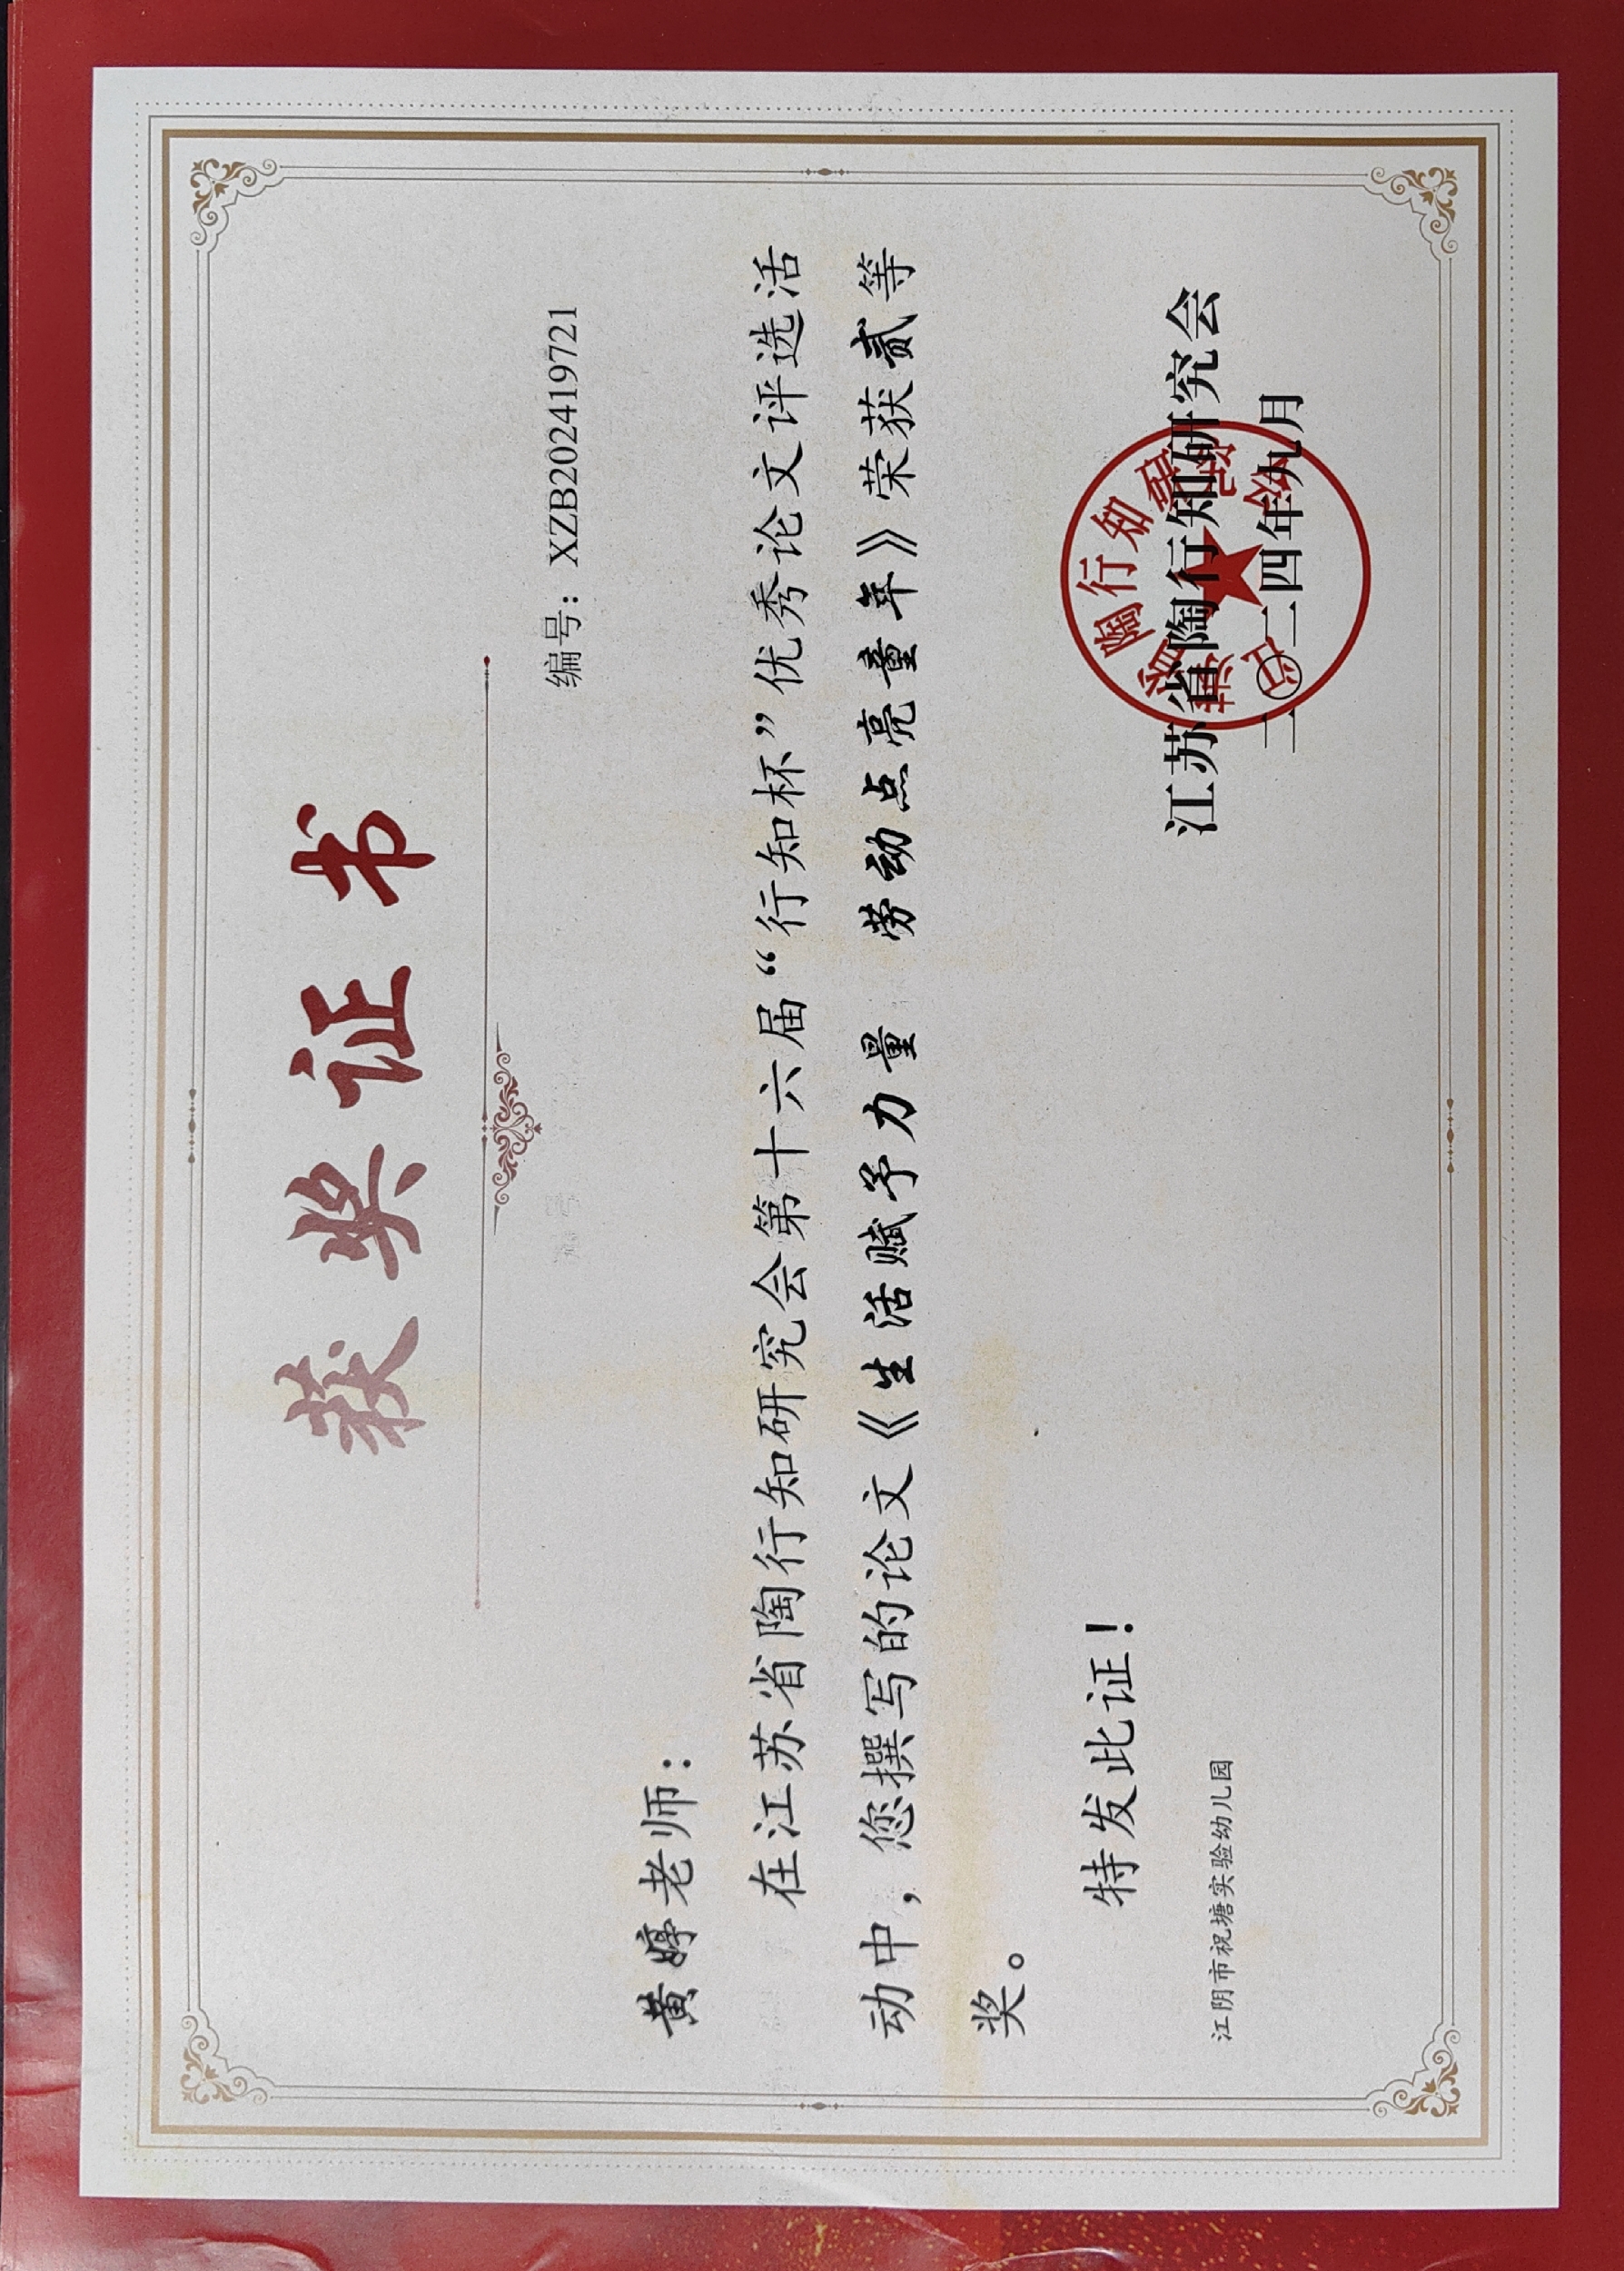 获奖证书
编号：XZB202419721
黄婷老师：
在江苏省陶行知研究会第十六届“行知杯”优秀论文评选活
动中，您撰写的论文《生活赋予力量 劳动点亮童年》荣获贰等
奖。
特发此证！
江阴市祝塘实验幼儿园
江苏省陶行知研究会
二〇二四年九月
江苏省陶行知研究会